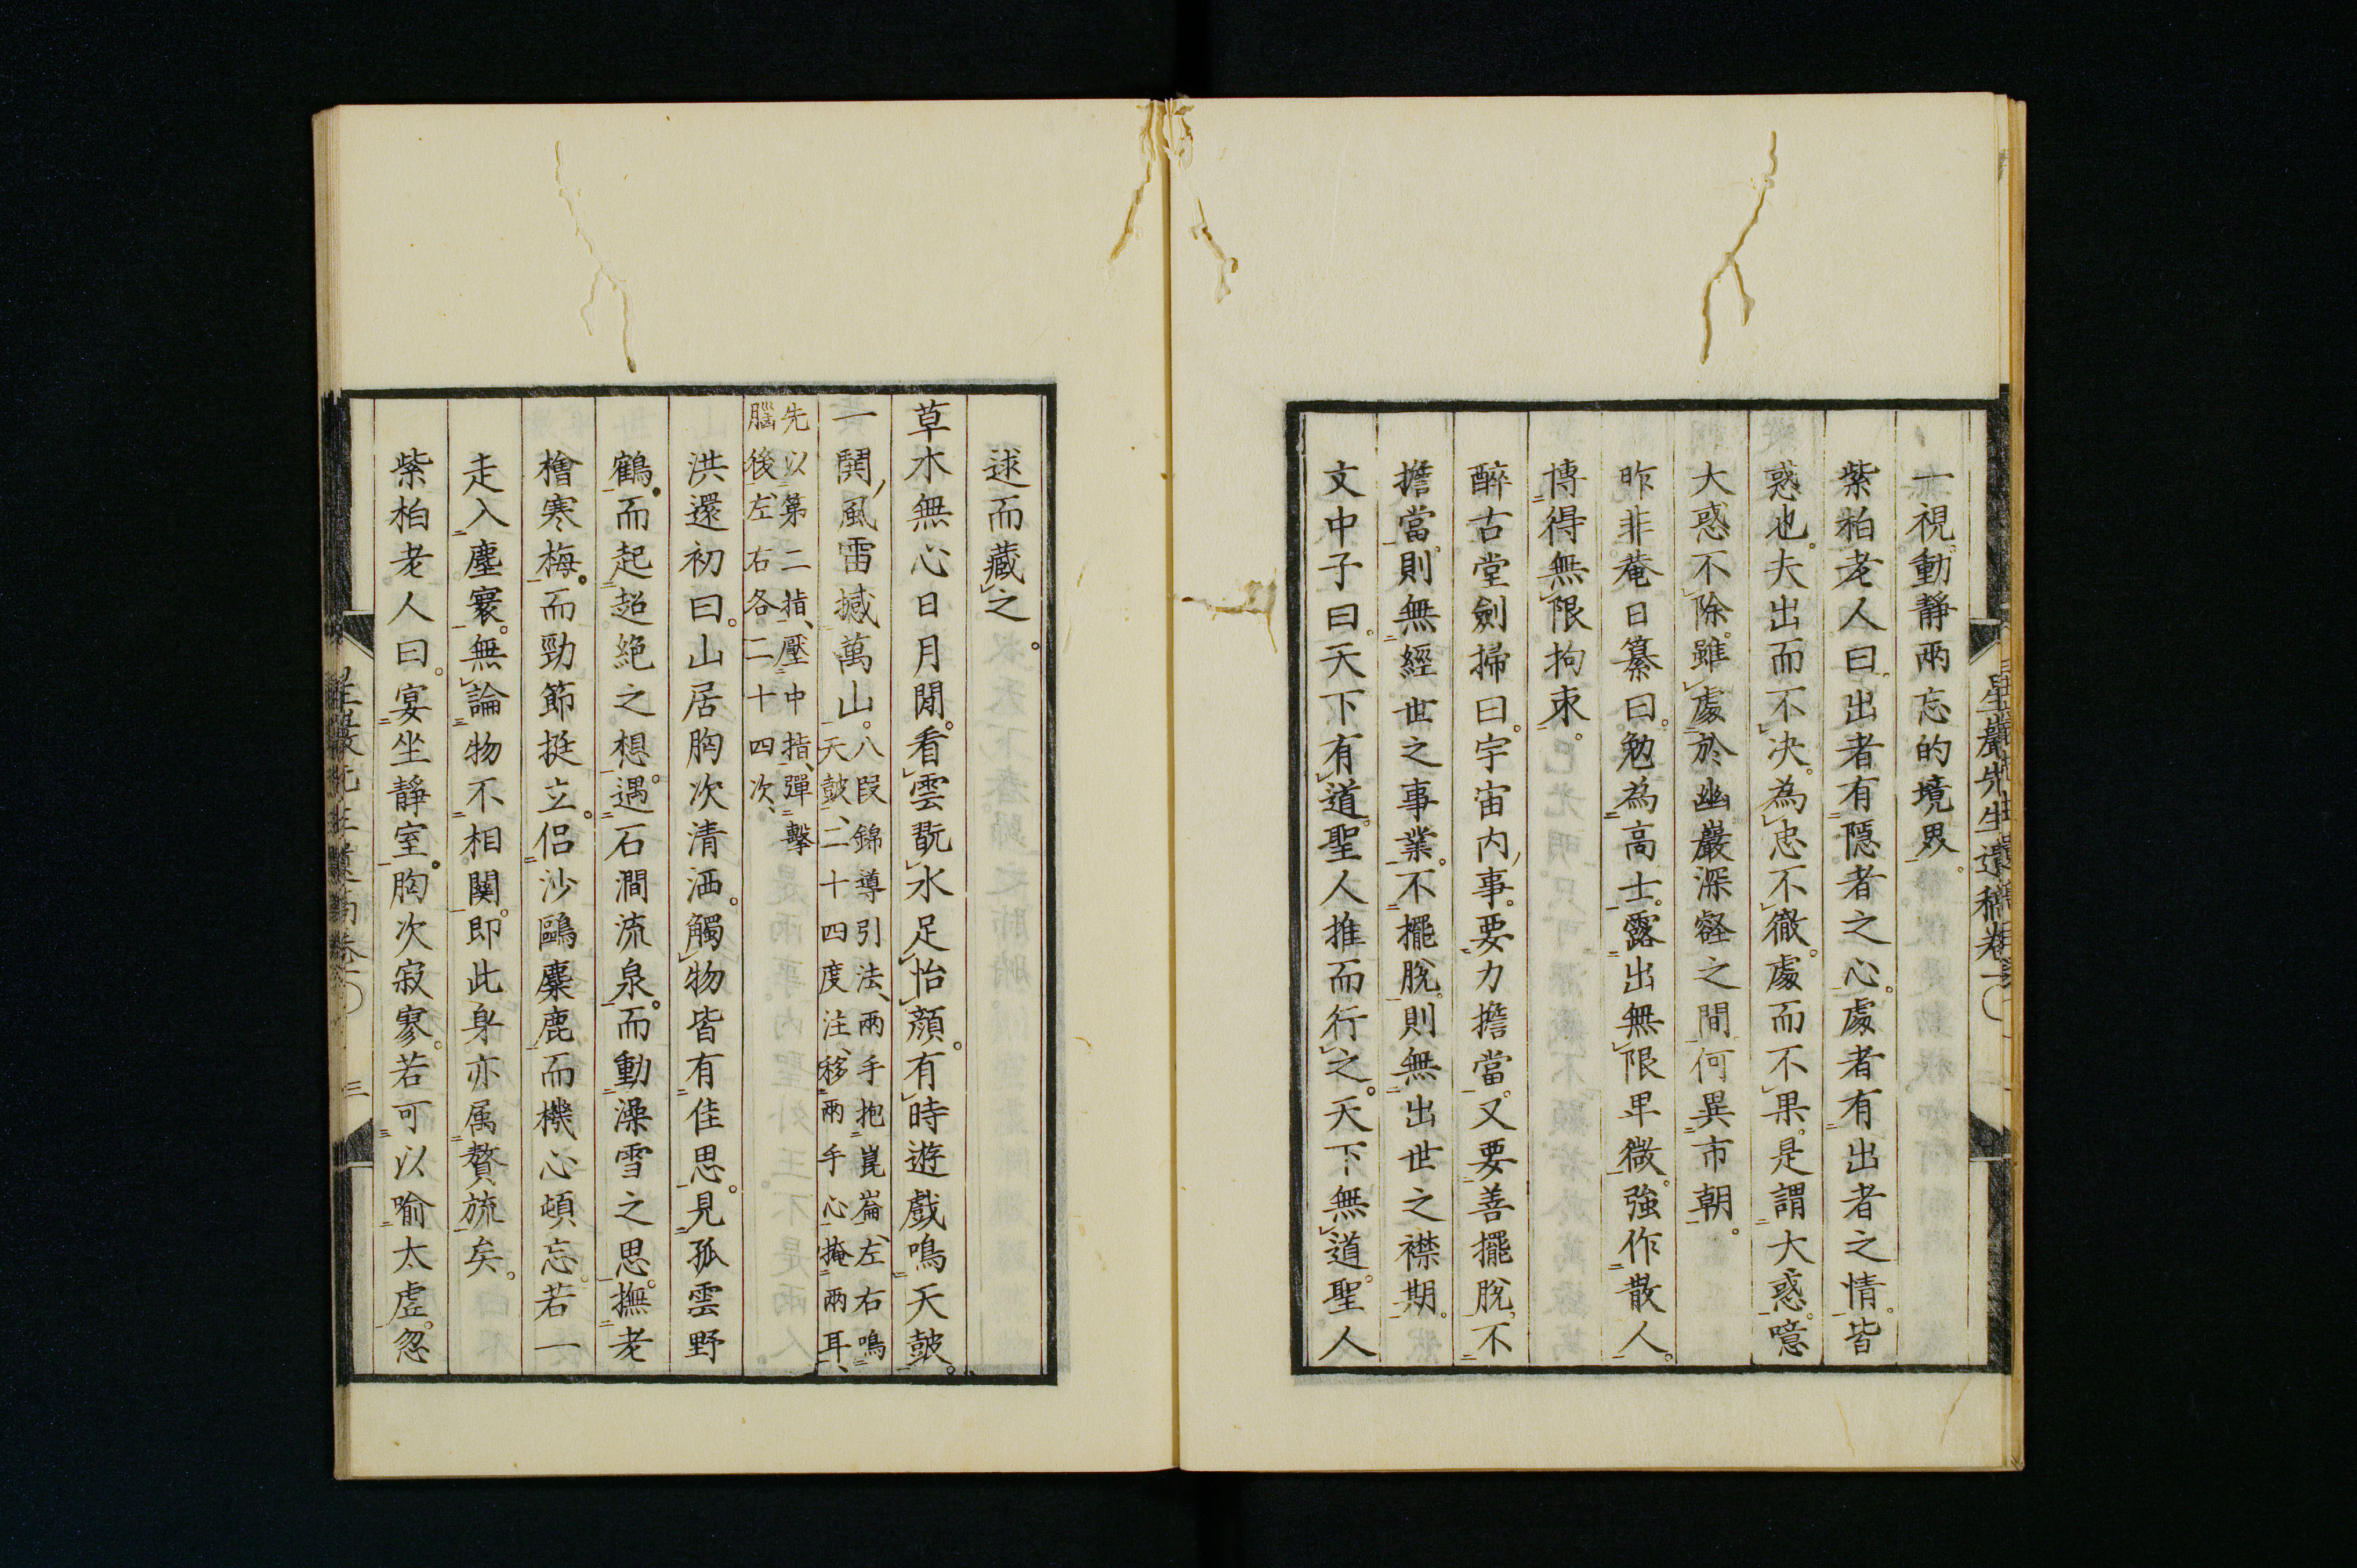 一視。動靜兩忘的境界。
紫柏老人曰。出者有隱者之心。處者有出者之情。皆
惑也。夫出而不決。為忠不徹。處而不果。是謂大惑。噫
大惑不除。雖處於幽巖深壑之間。何異市朝。
昨非菴日纂曰。勉為高士。露出無限卑微。強作散人。
博得無限拘束。
醉古堂劍掃曰。宇宙內事。要力擔當。又要善擺脫。不
擔當。則無經世之事業。不擺脫。則無出世之襟期。
文中子曰。天下有道。聖人推而行之。天下無道。聖人
逑而藏之。
草木無心日月閒。看雲翫水足怡顏。有時遊戲鳴天鼓。
一鬨風雷撼萬山。八段錦導引法、兩手抱崑崙、左右鳴
天鼓、二十四度注、移兩手心、掩兩耳、
先以第二指、壓中指、彈擊
腦後、左右各二十四次、
洪還初曰。山居胸次清洒。觸物皆有佳思。見孤雲野
鶴。而起超絕之想。遇石澗流泉。而動澡雪之思。撫老
檜寒梅。而勁節挺立。侶沙鷗麋鹿而機心頓忘。若一
走入塵寰。無論物不相關。即此身亦屬贅旒矣。
紫柏老人曰。宴坐靜室。胸次寂寥。若可以喻太虛。忽
星巖先生遺稿卷一
三